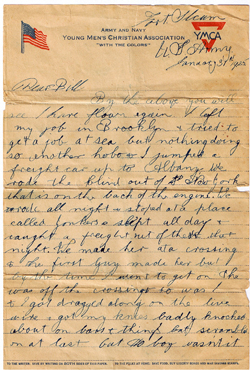 Fort Slocum
ARMY AND NAVY
YOUNG MEN'S CHRISTIAN ASSOCIATION
"WITH THE COLORS"
YMCA
U S Army
Dear Bill
By the above you will
see I have flown again I left
my job in Brooklyn & tried to
get a job at sea but nothing doing
so another hobo & I jumped a
freight car up to Albany We
rode the blind out of
that is on the back of the engine we
rode all night & stoped at a place
called slept all day &
caught a freight out of there that
night. We made her at a crossing
& the first guy made her but
by the time I went to get on the
was off the crossing so was I
& I got dragged along on the
wire & got my knees badly knocked
about on bars & things but scrambled
on at last but Oh boy wasn't it